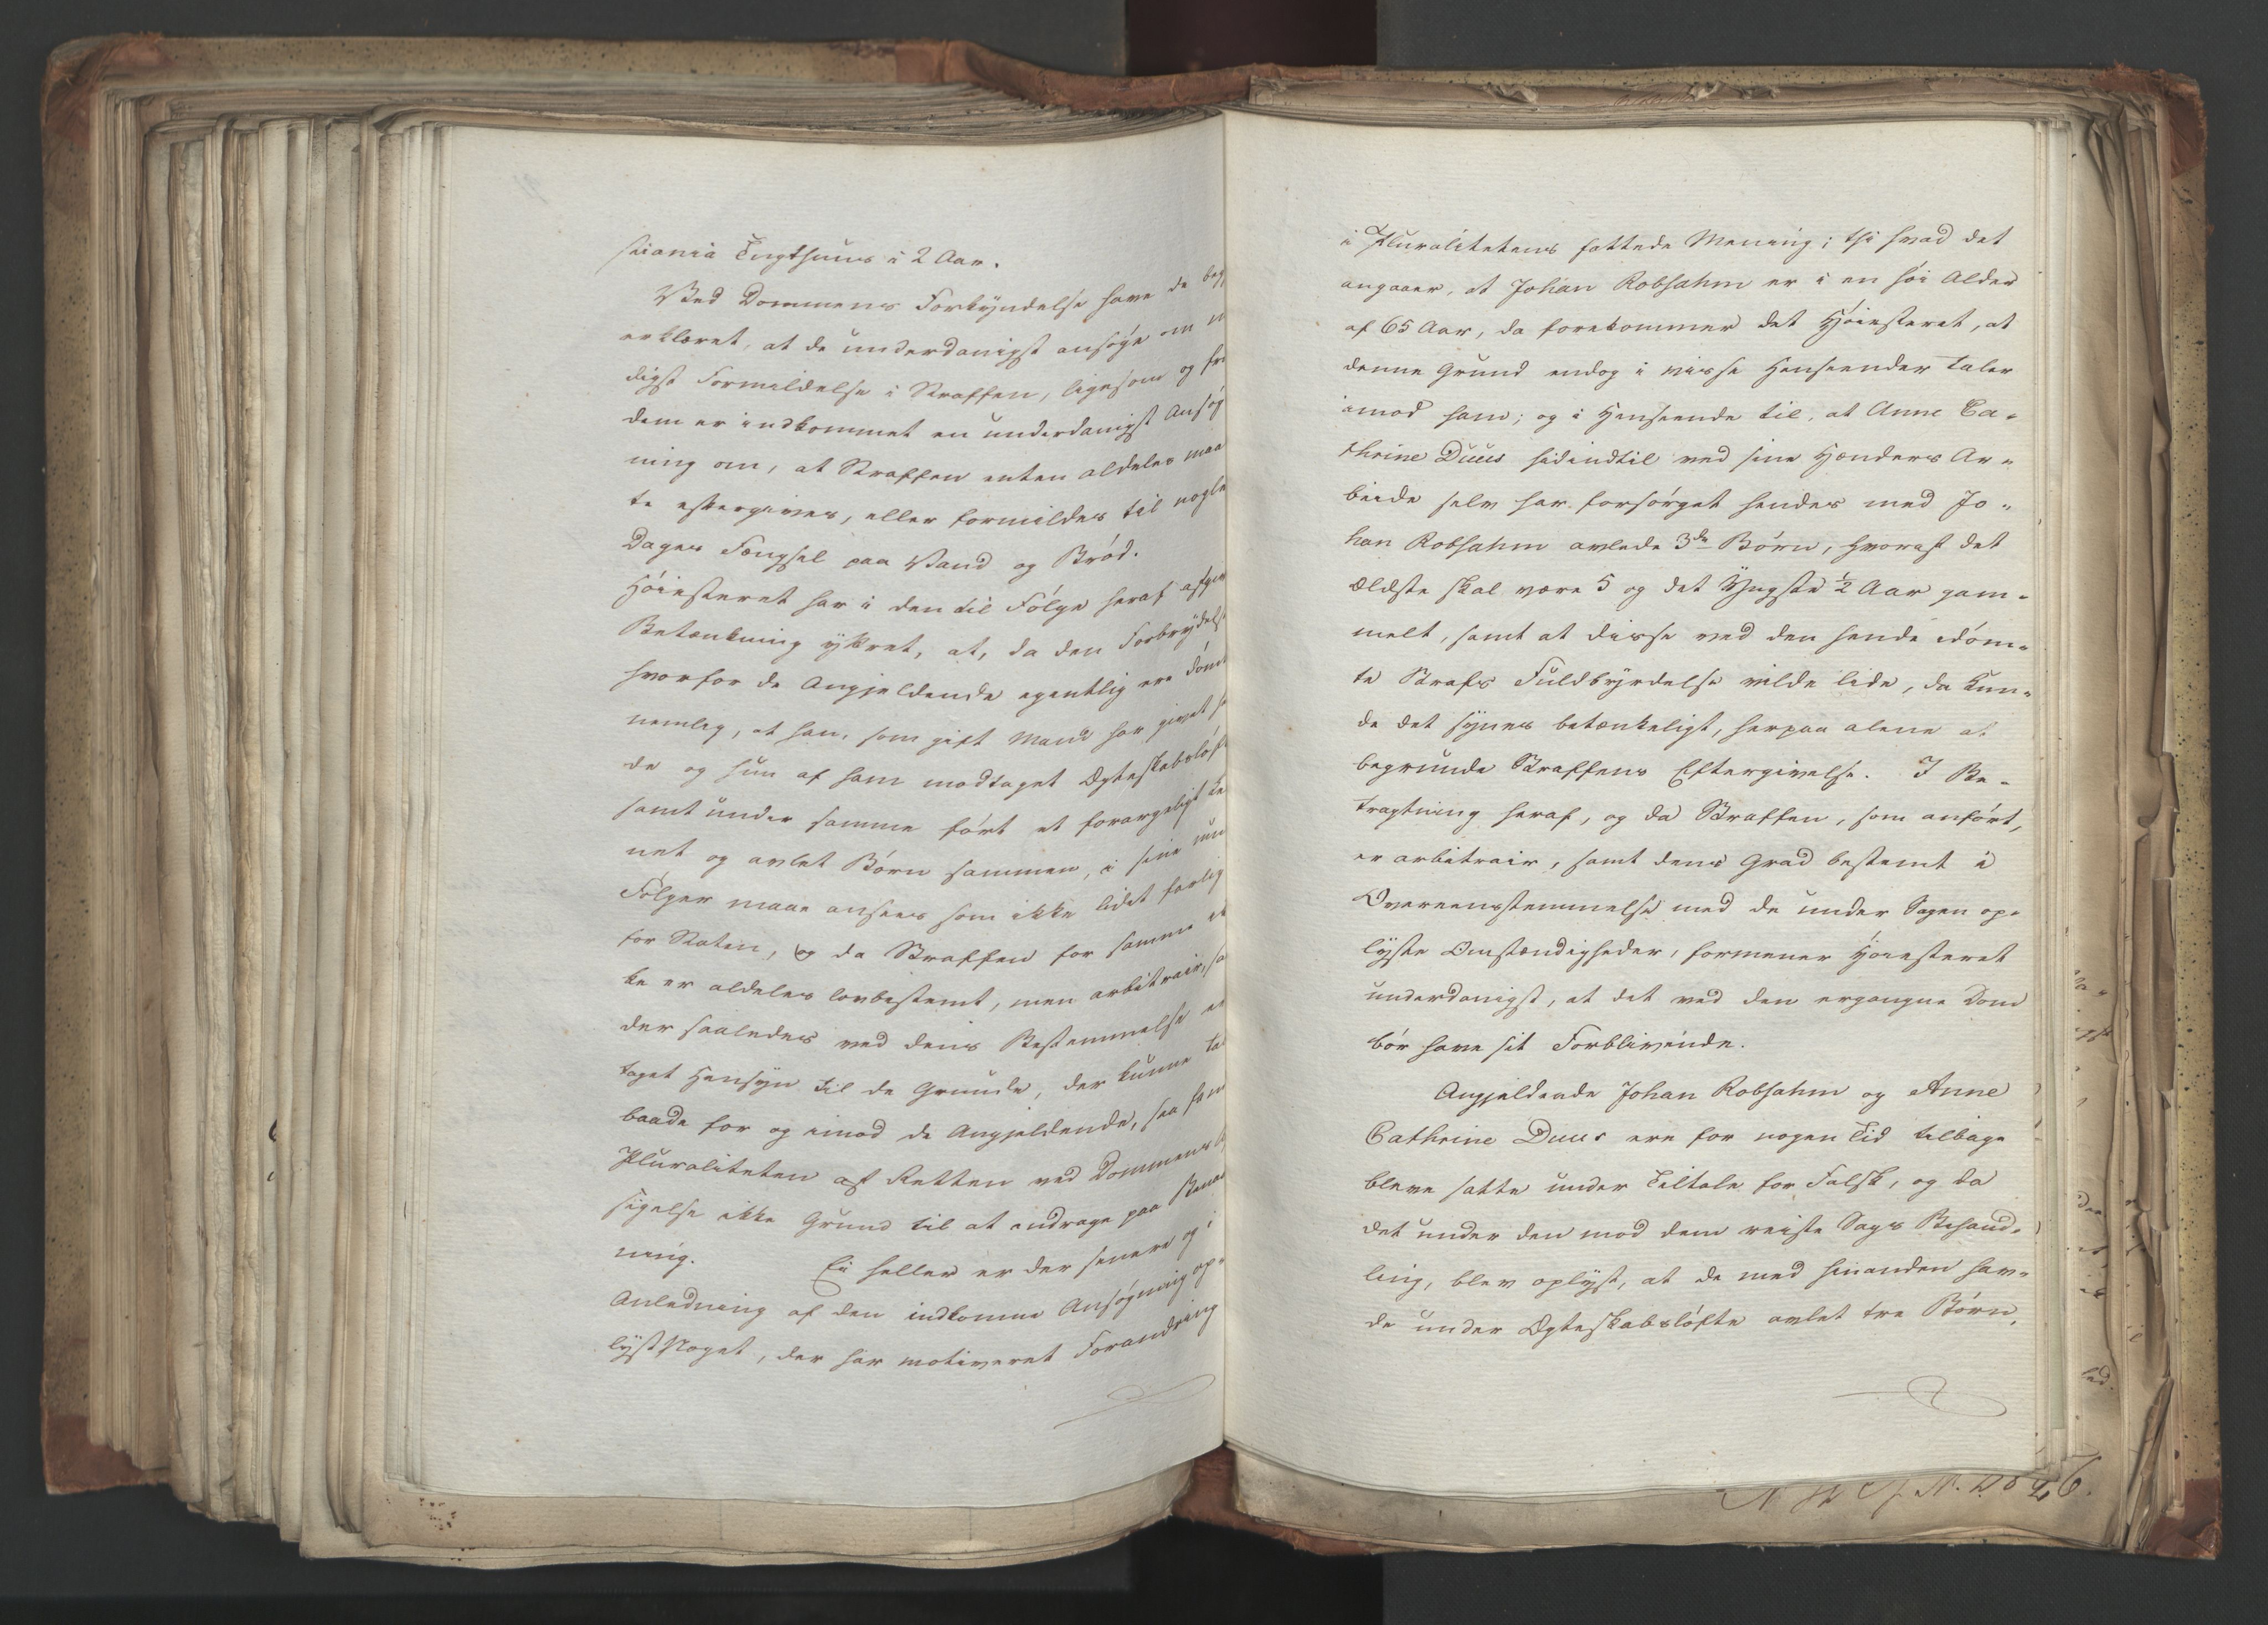 stiania Tugthuus i 2 Aar.
Ved Dommens Forkyndelse have de beg
erklæret, at de underdanigst ansøge om n
digst Formildelse i Straffen, ligesom og fra
dem er indkommet en underdanigst Ansøg
ning om, at Straffen enten aldeles maa
te eftergives, eller formildes til nogle
Dages Fængsel paa Vand og Brød.
Høiesteret har i den til Følge heraf afgivn
Betænkning yttret, at, da den Forbrydelse
hvorfor de Angjeldende egentlig ere dømt
nemlig, at han, som gift Mand har givet he
de og hun af ham modtaget Ægteskabsløft
samt under samme ført et forargeligt Le
net og avlet Børn sammen, i sine
Følger maae ansees som ikke lidet farlig
for Staten, og da Straffen for samme ik
ke er aldeles lovbestemt, men arbitrair, sa
der saaledes ved dens Bestemmelse er
taget Hensyn til de Grunde, der kunne tal
baade for og imod de Angjeldende, saa fan
Pluraliteten af Retten ved Dommens A
sigelse ikke Grund til at indrage paa Benaa
ning. Ei heller er der senere og i
Anledning af den indkomne Ansøgning op-
lyst Noget, der har motiveret Forandring
i Pluralitetens fattede Mening; thi hvad det
angaaer, at Johan Robsahm er i en høi Alder
af 65 Aar, da forekommer det Høiesteret, at
denne Grund endog i visse Henseender taler
imod ham; og i Henseende til, at Anne Ca-
thrine Duus hidindtil ved sine Hænders Ar-
beide selv har forsørget hendes med Jo-
han Robsahm avlede 3de Børn, hvoraf det
ældste skal være 5 og det Yngste ½ Aar gam-
melt, samt at disse ved den hende idøm-
te Strafs Fuldbyrdelse vilde lide, da kun-
de det synes betænkeligt, herpaa alene at
begrunde Straffens Eftergivelse. I Be-
tragtning heraf, og da Straffen, som anført,
er arbitrair, samt dens Grad bestemt i
Overeensstemmelse med de under Sagen op-
lyste Omstændigheder, formener Høiesteret
underdanigst, at det ved den ergangne Dom
bør have sit Forblivende.
Angjeldende Johan Robsahm og Anne
Cathrine Duus ere for nogen Tid tilbage
bleve satte under Tiltale for Falsk, og da
det under den mod dem reiste Sags Behand-
ling, blev oplyst, at de med hinanden hav-
de under Ægteskabsløfte avlet tre Børn,